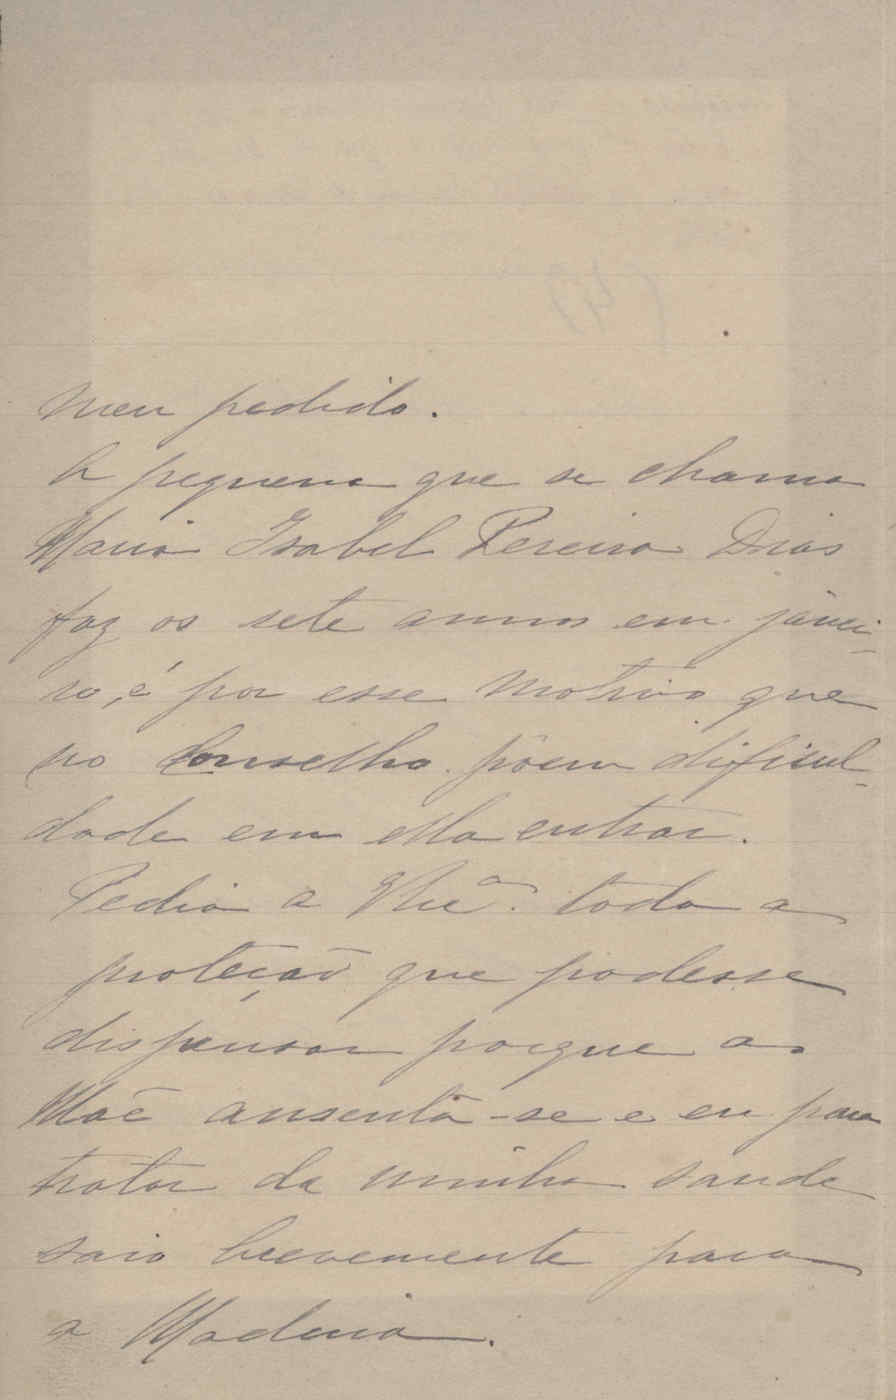 meu pedido.
A pequena que se chama
Maria Isabel Pereira Dias
faz os sete annos em janei-
ro, é por esse motivo que
no Conselho põem dificul-
dade em ella entrar.
Pedia a V. Exª. toda a
proteção que podesse
dispensar porque a
Mãe ausentà-se e eu para
tratar da minha saude
saio brevemente para
a Madeira.